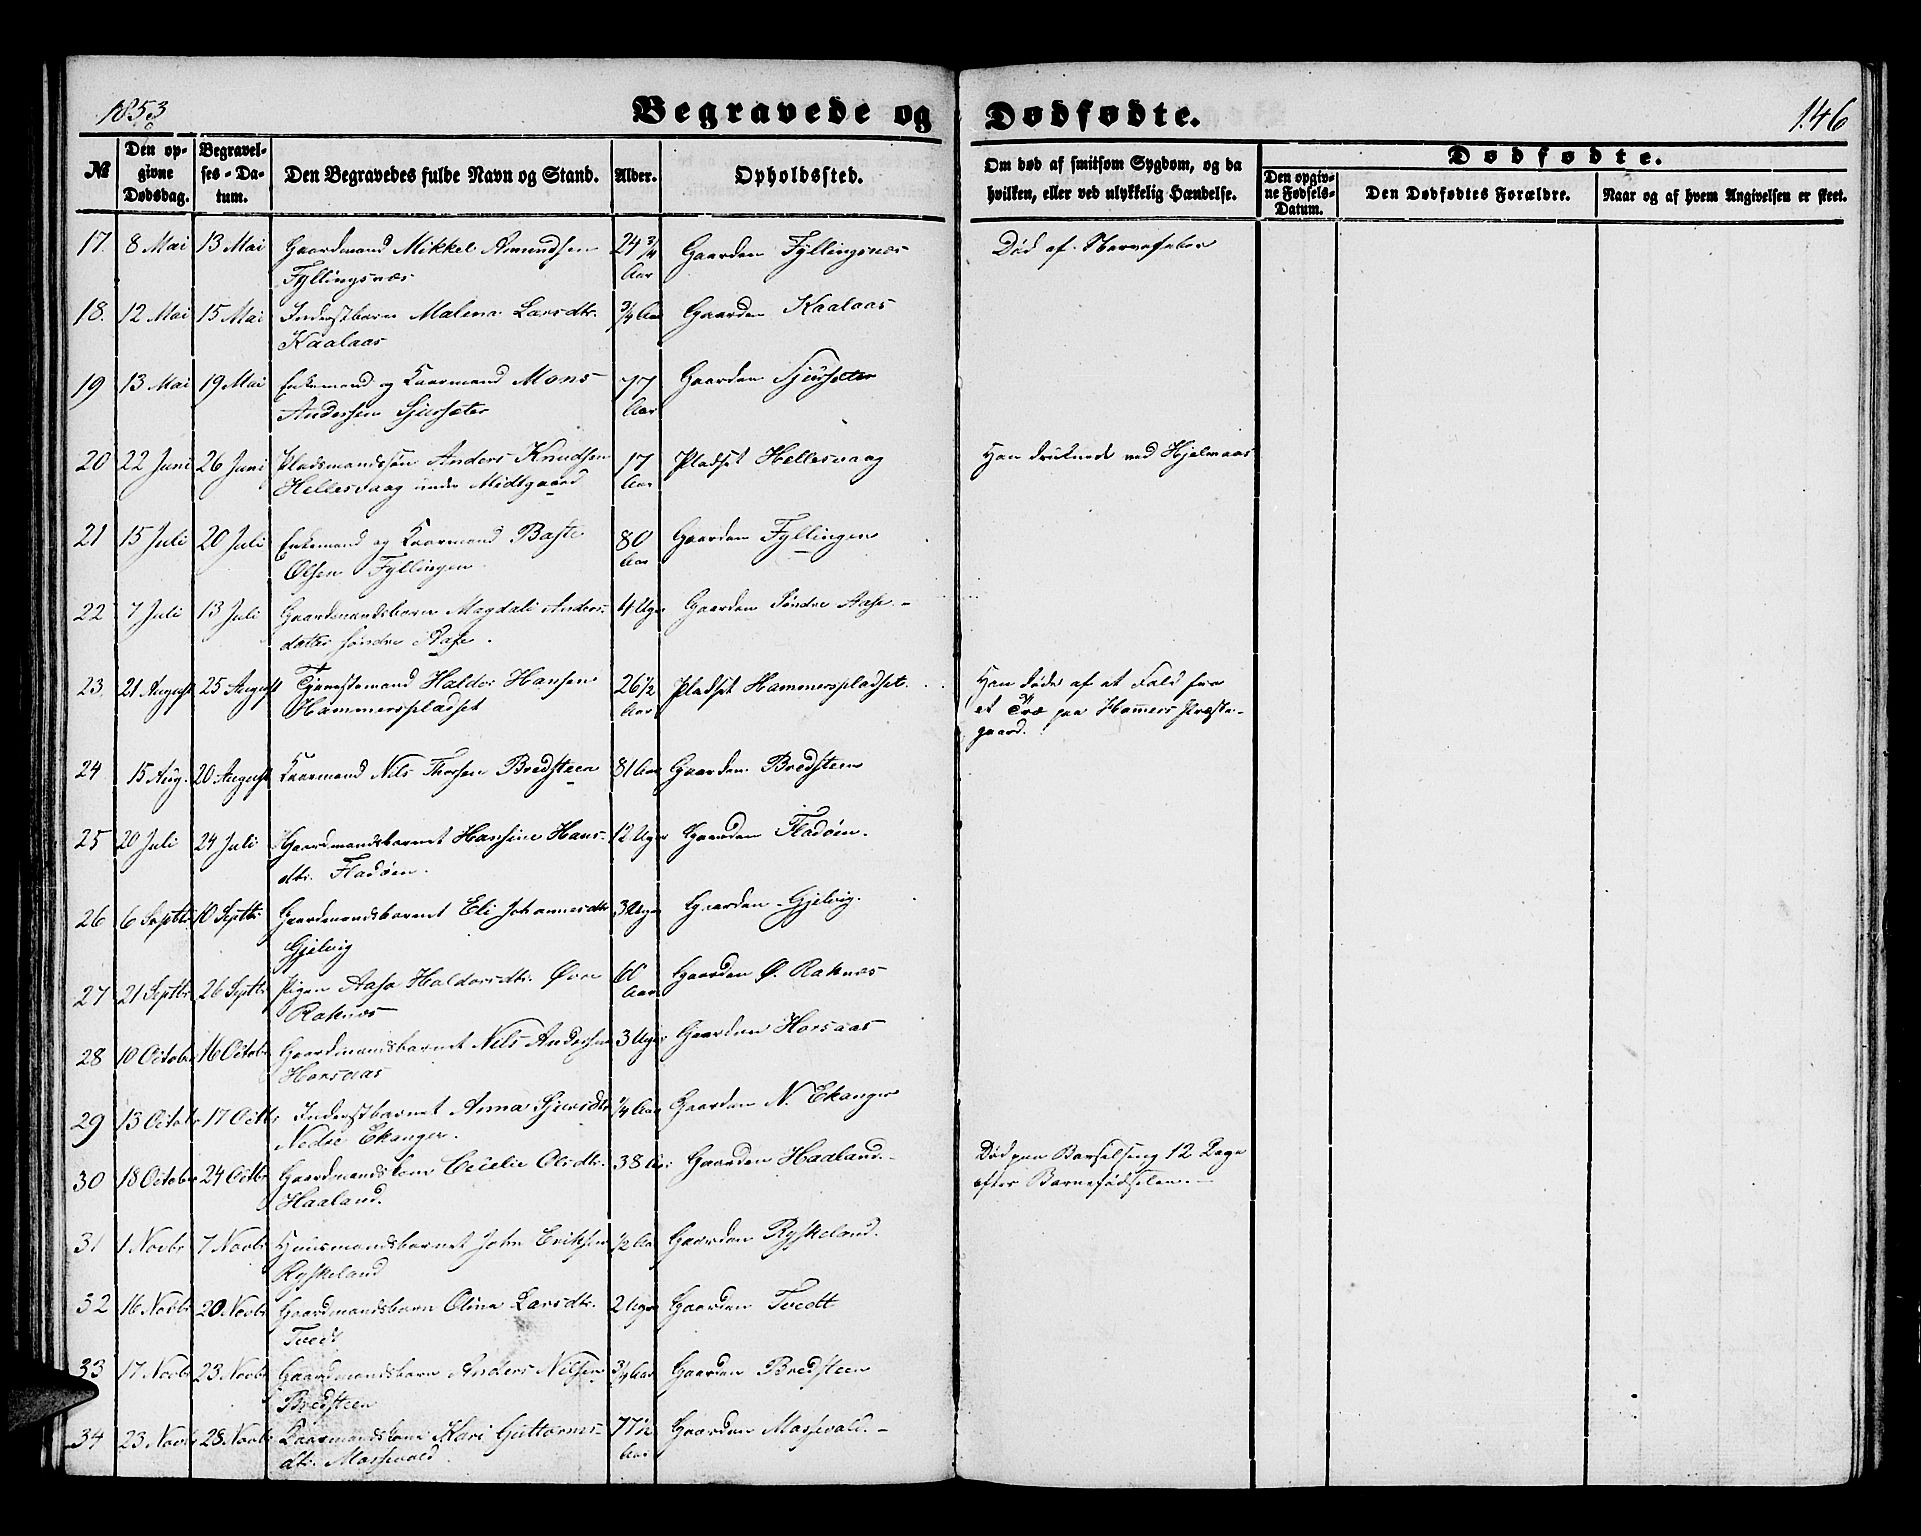 1853
Begravede og Dødfødte.
146
No
Den opgivne Dødsdag.
Begravelses-Datum.
Den Begravedes fulde Navn og Stand.
Alder.
Opholdssted.
Om død af smitsom Sygdom, og da hvilken, eller ved ulykkelig Hændelse.
Dødfødte.
Den opgivne Fødsels-Datum.
Den Dødfødtes Forældre.
Naar og af hvem Angivelsen er skeet.
17. 8 Mai 13 Mai Gaardmand Mikkel Amundsen 24 3/4 Gaarden Fyllingsnæs Død af Nervefeber
Fyllingsnæs Aar
18. 12 Mai 15 Mai Inderstbarn Malena Larsdtr. 3/4 Aar Gaarden Kaalaas
Kaalaas
19 13 Mai 19 Mai Enkemand og Kaarmand Mons 77 Gaarden Sjursæter
Andersen Sjursæter Aar
20 22 Juni 26 Juni Pladsmandssøn Anders Knudsen 17 Pladset Hellesvaag Han druknede ved Hjelmaas
Hellesvaag under Midtgaard Aar
21 15 Juli 20 Juli Enkemand og Kaarmand Baste 80 Gaarden Fyllingen
Olsen Fyllingen. Aar
22 7 Juli 13 Juli Gaardmandsbarn Magdali Anders- 4 Uger Gaarden Søndre Aase.-
datter søndre Aase.
23. 21 August 25 August Tjenestemand Haldor Hansen 26 1/2 Pladset Hammerspladset. Han døde af et Fald fra
Hammerspladset Aar et Træ paa Hamers Præste-
gaard.
24 15 Aug. 20 August Kaarmand Nils Thorsen Bredsteen 81 Aar Gaarden Bredsteen
25 20 Juli 24 Juli Gaardmandsbarnet Hansine Hans- 12 Uger Gaarden Fladøen.
dtr. Fladøen.
26 6 Septbr 10 Septbr Gaardmandsbarnet Eli Johannesdtr 3 Uger Gaarden Gjelvig.
Gjelvig
27 21 Septbr 26 Septbr Pigen Aasa Haldorsdtr. Øvre 60 Gaarden Ø. Raknæs
Raknæs Aar
28 10 Octobr 16 Octobr Gaardmandsbarnet Nils Andersen 3 Uger Gaarden Horsaas
Horsaas
29 13 Octobr 17 Octbr Inderstbarnet Anna Sjursdtr 1/4 Aar Gaarden N. Ekanger
Nedre Ekanger.
30 18 Octobr 24 Octbr Gaardmandskone Cecilie Olsdtr. 38 Aar Gaarden Haaland.- Død paa Barselseng 12 Dage
Haaland. efter Barnefødselen.-
31 1 Novbr 7 Novbr Huusmandsbarnet John Eriksen 1/2 Aar Gaarden Ryskeland.
Ryskeland
32 16 Novbr 20. Novbr Gaardmandsbarn Olina Larsdtr. 2 Uger Gaarden Tvedt
Tvedt
33 17 Novbr 23 Novbr Gaardmandsbarn Anders Nilsen 3/4 Aar Gaarden Bredsteen
Bredsteen
34 23 Novbr 28 Novbr Kaarmandskone Kari Guttorms- 77 1/2 Gaarden Massevald.-
dtr. Massevald. Aar